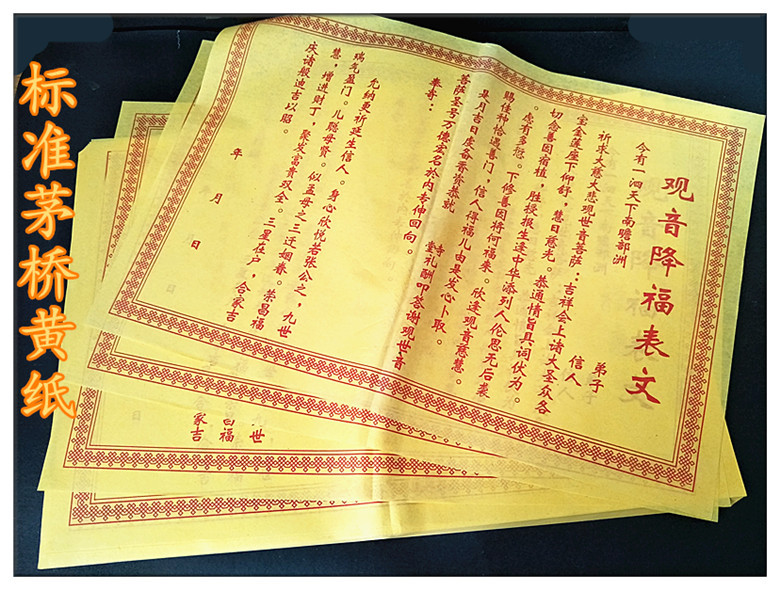 标准茅桥黄纸
观音降福表文
今有一泗天下南瞻部洲
弟子
信人
祈求大慈大悲观世音菩萨:吉祥会上请大圣众各
宝金莲座下仰舒,慧日慈光。恭通情旨具词伏为。
切念善因宿植,胜授报生逢中华添列人伦思无后裹
。虑有多愆。下修善因将何福来。欣逢观音慈慧。
赐佳种恰遇善门,信人得福儿由是发心卜取。
具月吉日虔备香茶恭就 寺堂礼酬叩答谢观世音
菩萨圣号万德宏名於内专伸回向。
奉寿:
允纳更祈延生信人。身心欣悦若张公之,九世
瑞气盈门。儿聪母贤。似孟母之三迁姻眷。荣昌福
慧,增进财丁,聚发富贵双全。三星在户,合家吉
庆诸般迪吉以昭。
年 月 日
世
福
家吉